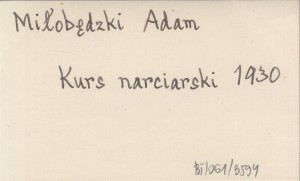 Miłobędzki Adam
Kurs narciarski 1930
BI/061/3594